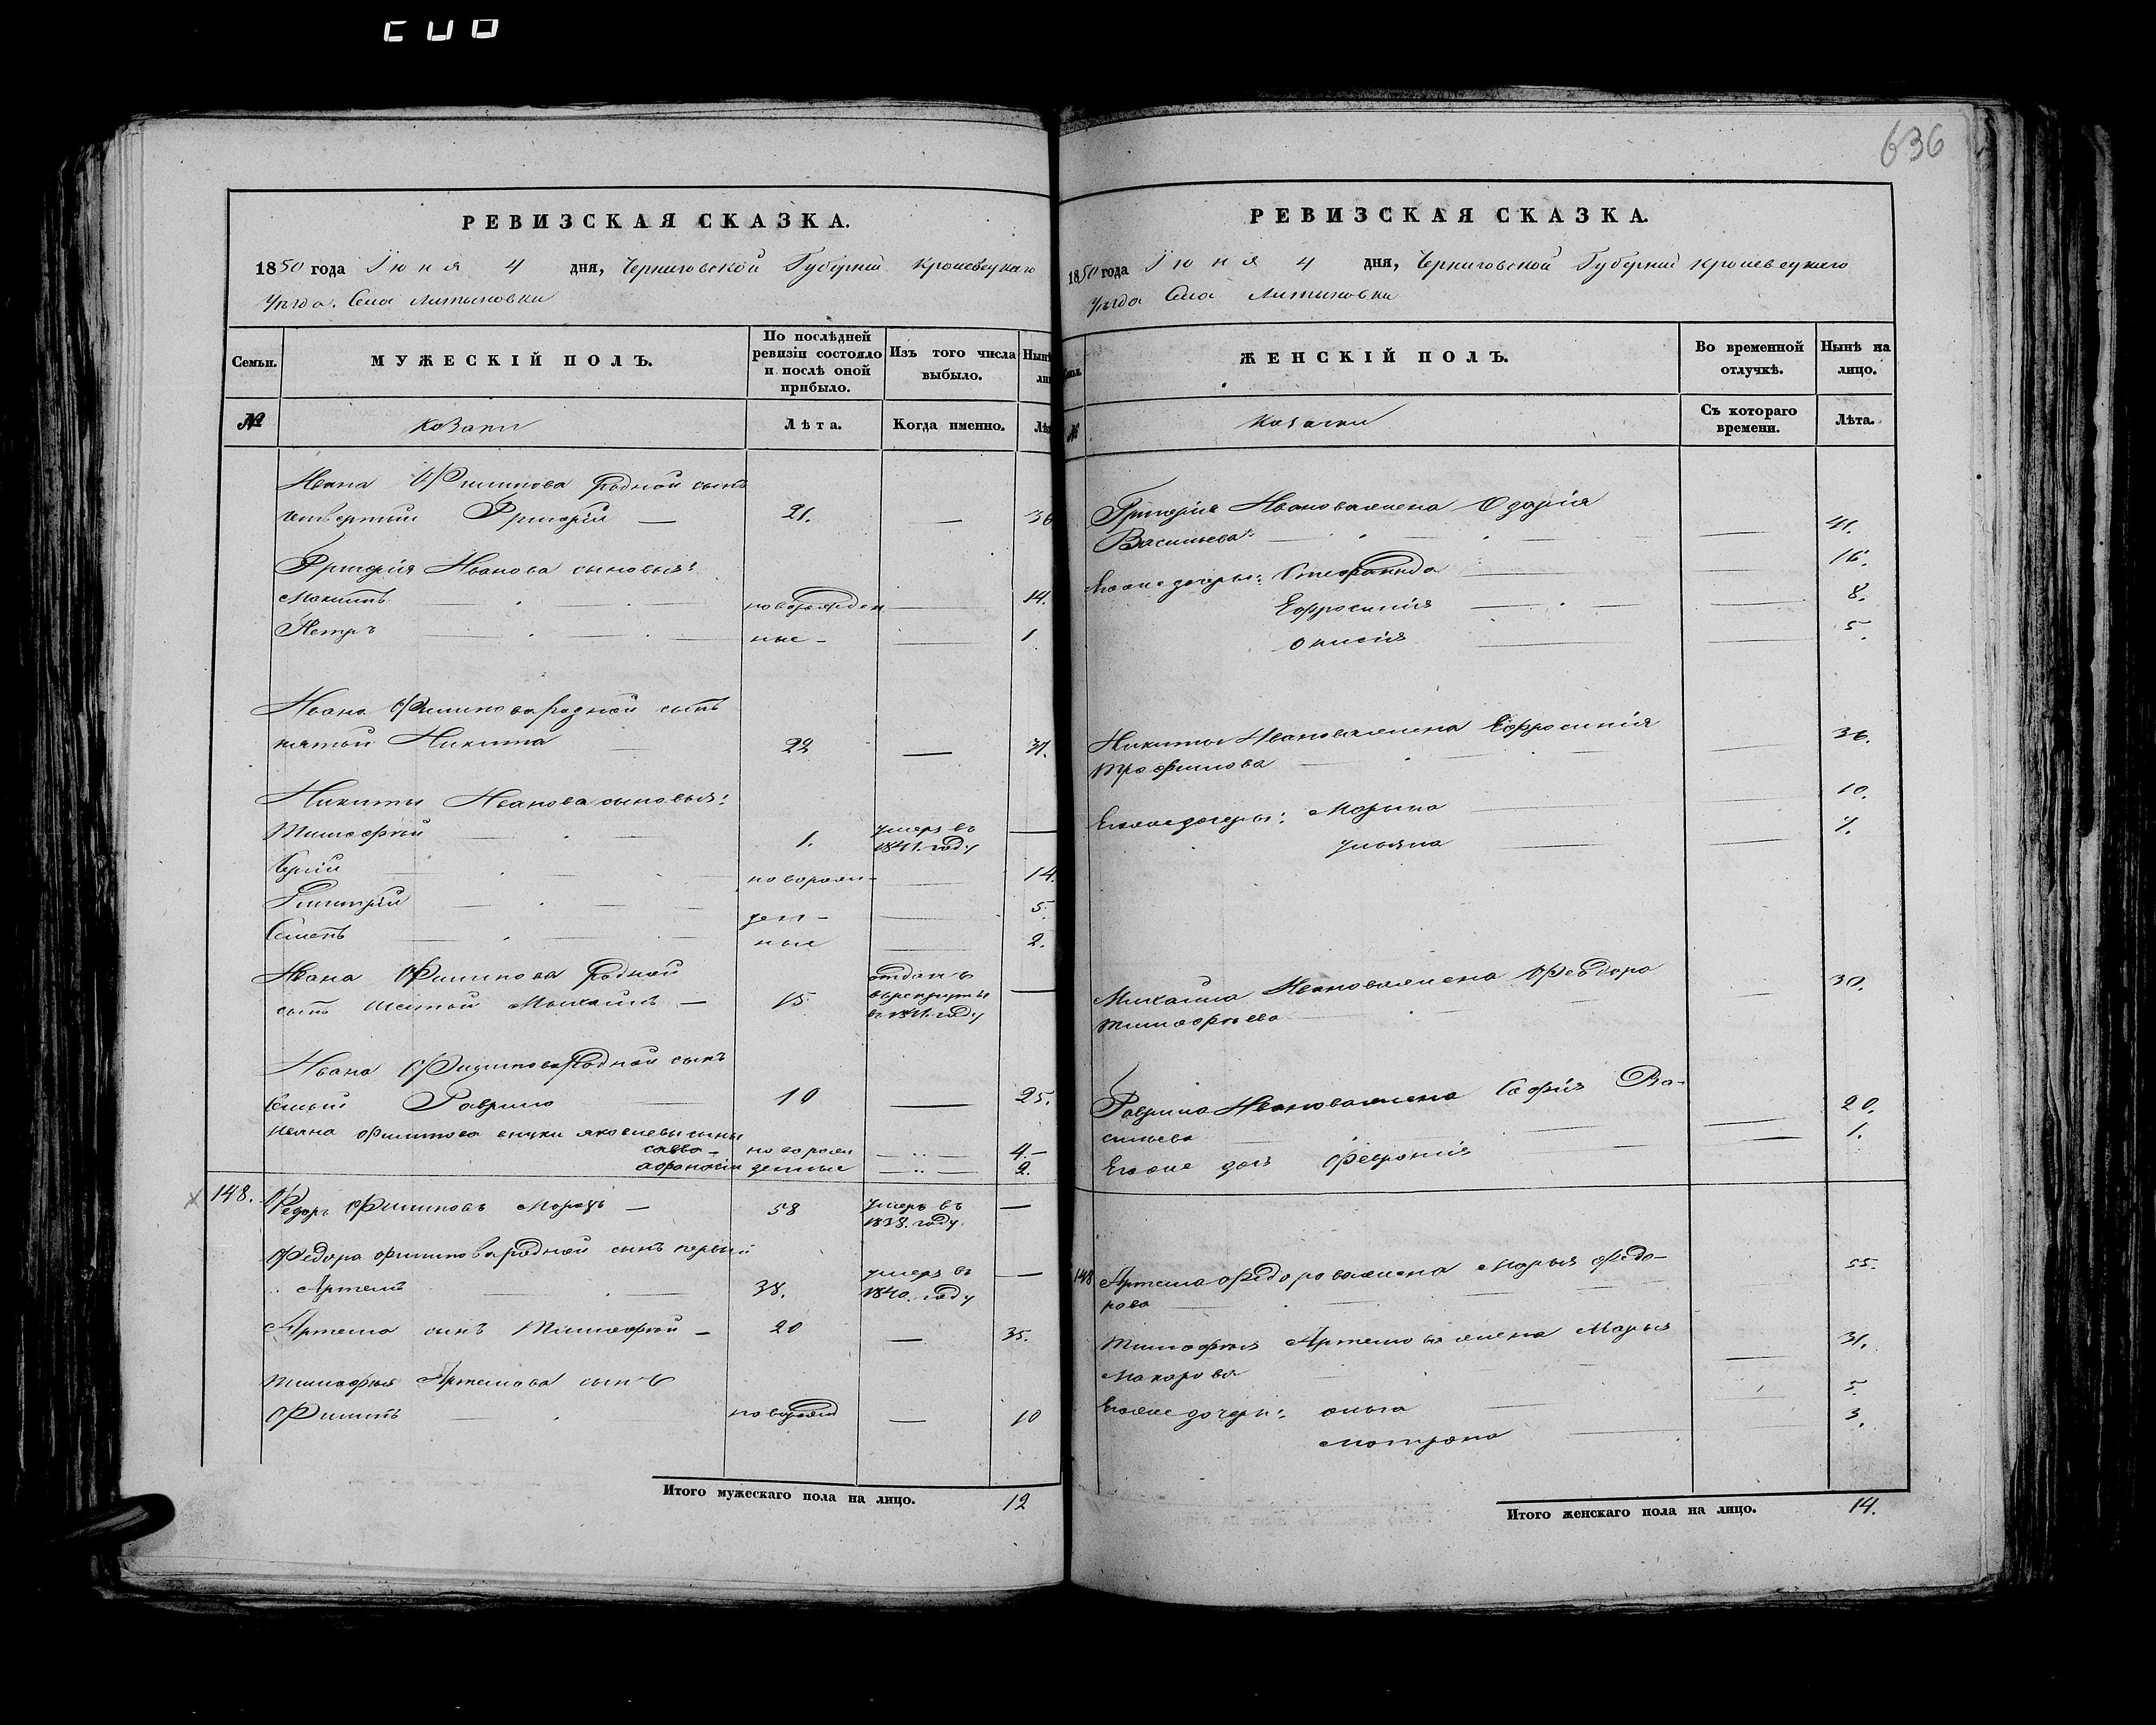 636
РЕВИЗСКАЯ СКАЗКА.
1850 года Іюня 4 дня, Черниговской Губерніи Кролевецкаго
Уѣзда. Села Литвиновки
Семьи.
МУЖЕСКІЙ ПОЛЪ.
По послѣдней ревизіи состояло и послѣ оной прибыло.
Изъ того числа выбыло.
Нынѣ
№
Козаки
Лѣта.
Когда именно.
Ивана Филипова родной сынъ
четвертый Григорій — 21. — 36
Григорія Иванова сыновья:
Макимъ новорожден — 14.
Петръ ные — — 1
Ивана Филипова родной сынъ
пятый Никита 22 — 37.
Никиты Иванова сыновья:
Тимофѣй 1. умеръ въ 1841. году —
Сергій новорож — 14
Димитрій ден — 5.
Семенъ ные 2.
Ивана Филипова родной
сынъ шестый Михаилъ — 15 отданъ в рекруты въ 1841. году —
Ивана Филипова родной сынъ
семый Гаврило 10 — 25.
Ивана Филипова внуки Яковлевы сыны
Савва — новорож — 4. —
Афонасій денные — 2.
148. Федоръ Филиповъ Морозъ — 58 умеръ въ 1838. году —
Федора Филипова родной сынъ первый
Артемъ 38. умеръ въ 1840. году —
Артема сынъ Тимофѣй — 20 — 35.
Тимофѣя Артемова сынъ
Филипъ новорожд — 10
Итого мужескаго пола на лицо. 12
РЕВИЗСКАЯ СКАЗКА.
1850 года Іюня 4 дня, Черниговской Губерніи Кролевецкаго
Уѣзда Села Литвиновки
ЖЕНСКІЙ ПОЛЪ.
Во временной отлучкѣ.
Нынѣ на лицо.
№
Козачки
Съ котораго времени.
Лѣта.
Григорія Иванова жена Одарія
Васильева — 41.
Его же дочеры: Степанида — 16.
Ефросинія — 8.
Анисія — 5.
Никиты Иванова жена Ефросинія
Трофимова — 36.
Его же дочеры: Марина — 10.
Ульяна — 7.
Михаила Иванова жена Федора
Тимофѣева — 30.
Гаврила Иванова жена Софія Ва-
сильева — 20.
Его же дочь Февронія — 1.
148 Артема Федорова жена Марья Федо-
рова 55.
Тимофѣя Артемова жена Марья
Макарова — 31.
Его же дочеры: Ольга 5.
Матрона 3.
Итого женскаго пола на лицо. 14.